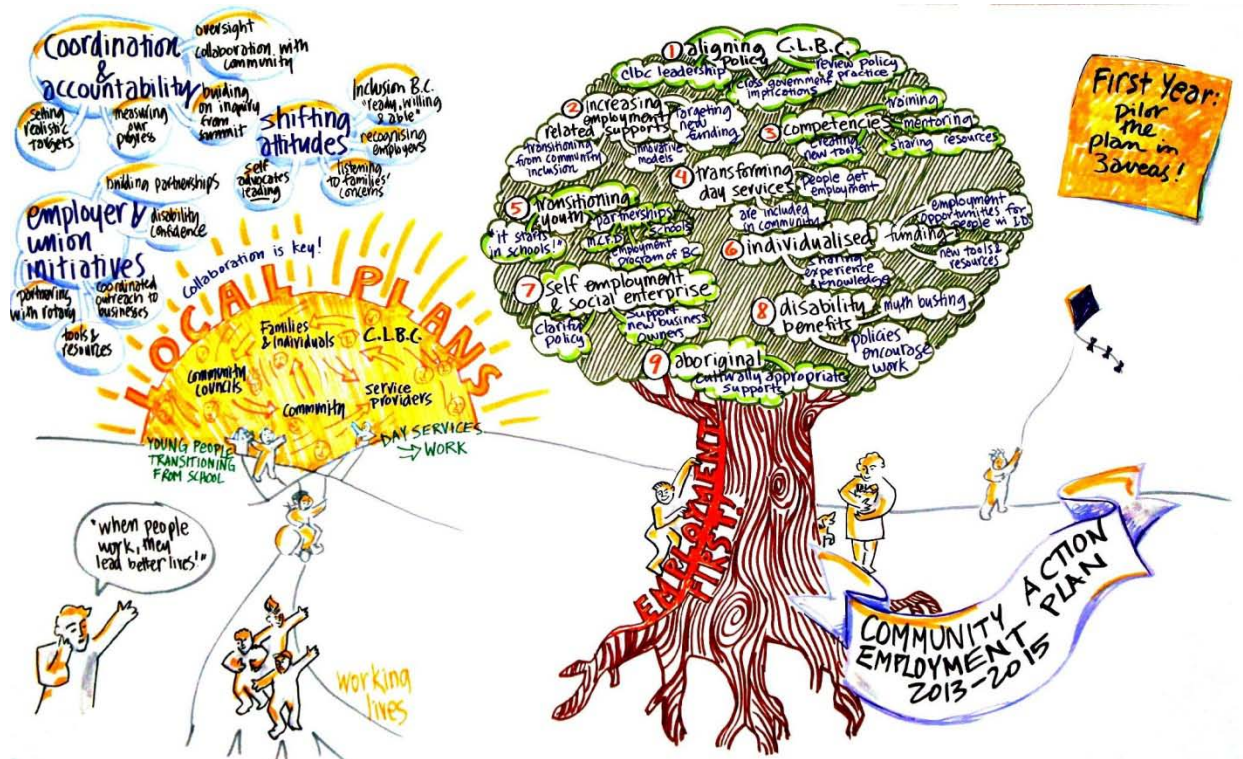 coordination
&
accountability
oversight
collaboration with
community
setting
realistic
targets
measuring
our
progress
building
on inquiry
from
summit
shifting
attitudes
Inclusion B.C.
"ready, willing
& able"
recognising
employers
self
advocates
leading
listening
to families'
concerns
employer &
union
initiatives
building partnerships
disability
confidence
partnering
with rotary
coordinated
outreach to
businesses
tools &
resources
Collaboration is key!
LOCAL PLANS
Families
& Individuals
C.L.B.C.
Community
Councils
Community
Service
Providers
YOUNG PEOPLE
TRANSITIONING
FROM SCHOOL
DAY SERVICES
→ WORK
"when people
work, they
lead better lives!"
working
lives
1 aligning C.L.B.C.
policy
clbc leadership
cross government
implications
review policy
& practice
2 increasing
employment
related supports
targeting
new
funding
transitioning
from community
inclusion
innovative
models
3 competencies
training
mentoring
sharing resources
creating
new tools
4 transforming
day services
people get
employment
are included
in community
5 transitioning
youth
"it starts
in schools!"
partnerships
M.C.F.D.
schools
employment
program of BC
6 individualised
funding
employment
opportunities for
people in I.D.
new tools &
resources
sharing
experience
& knowledge
7 self employment
& social enterprise
clarify
policy
support
new business
owners
8 disability
benefits
myth busting
policies
encourage
work
9 aboriginal
culturally appropriate
supports
EMPLOYMENT
FIRST!
First Year:
Pilot
the
plan in
3 areas!
COMMUNITY ACTION
EMPLOYMENT PLAN
2013-2015